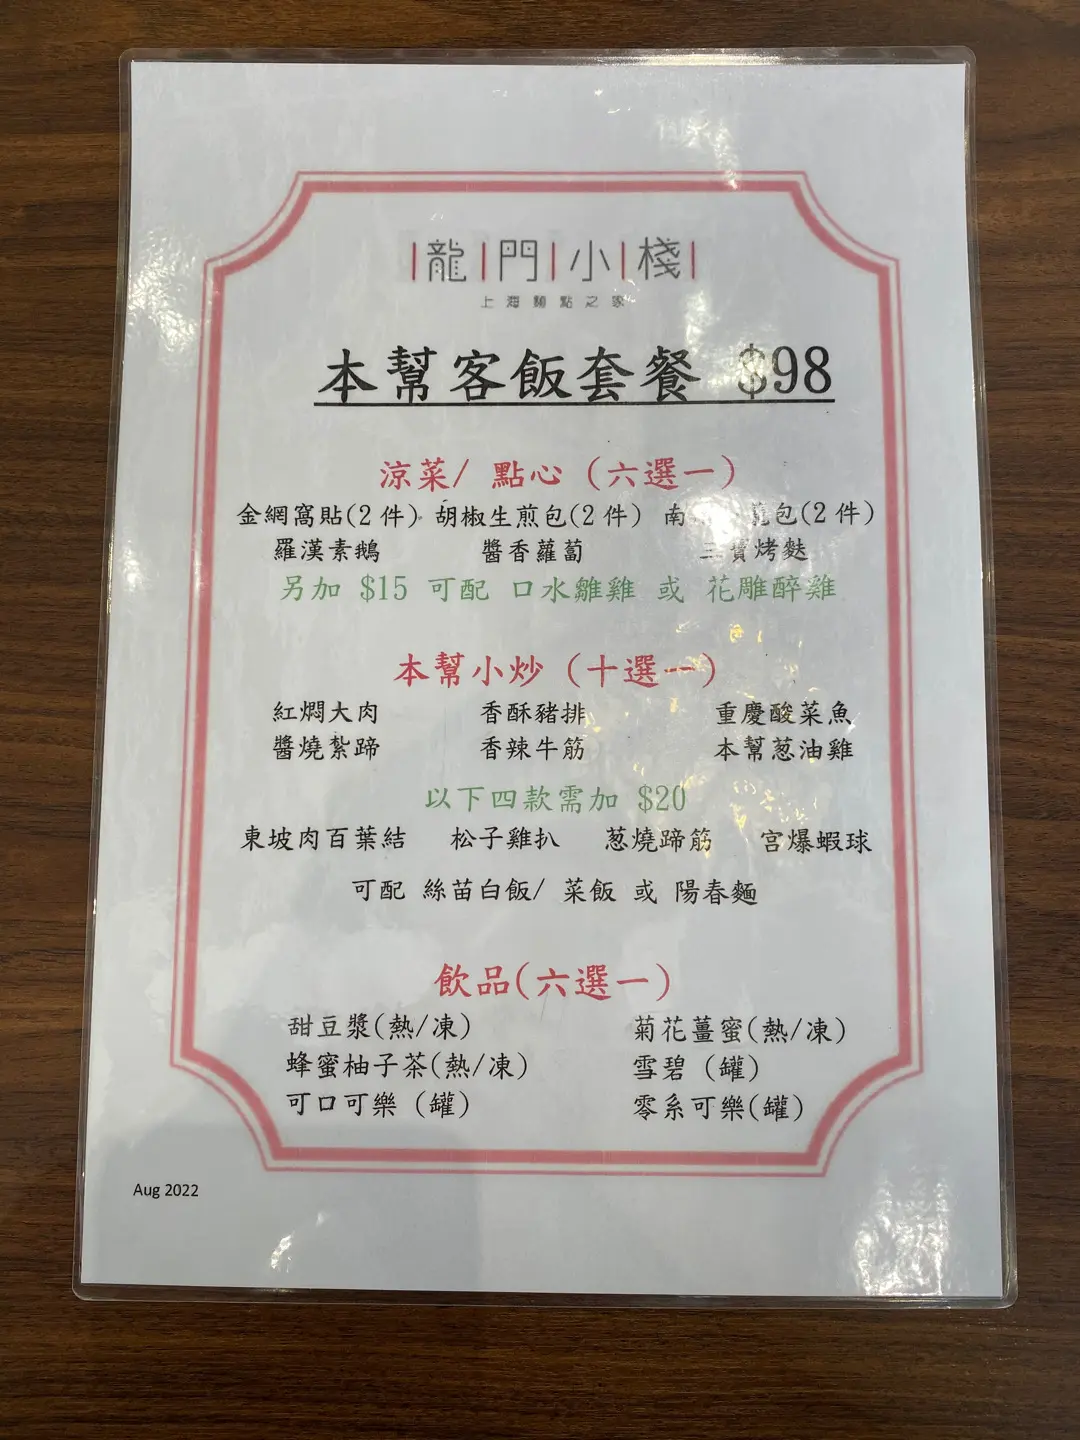 龍門小棧
上海麵點之家
本幫客飯套餐 $98
涼菜/ 點心 (六選一)
金網窩貼(2 件) 胡椒生煎包(2 件) 南 包(2 件)
羅漢素鵝 醬香蘿蔔 三寶烤麩
另加 $15 可配 口水雞 或 花雕醉雞
本幫小炒 (十選一)
紅燜大肉 香酥豬排 重慶酸菜魚
醬燒紮蹄 香辣牛筋 本幫葱油雞
以下四款需加 $20
東坡肉百葉結 松子雞扒 葱燒蹄筋 宮爆蝦球
可配 絲苗白飯/ 菜飯 或 陽春麵
飲品(六選一)
甜豆漿(熱/凍) 菊花薑蜜(熱/凍)
蜂蜜柚子茶(熱/凍) 雪碧 (罐)
可口可樂 (罐) 零系可樂(罐)
Aug 2022